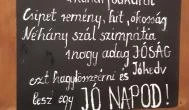 Csipet remény, hit, okosság
Néhány szál szimpátia
1 nagy adag JÓSÁG
ezt hagyd összeérni és Jókedv
lesz egy JÓ NAPOD!